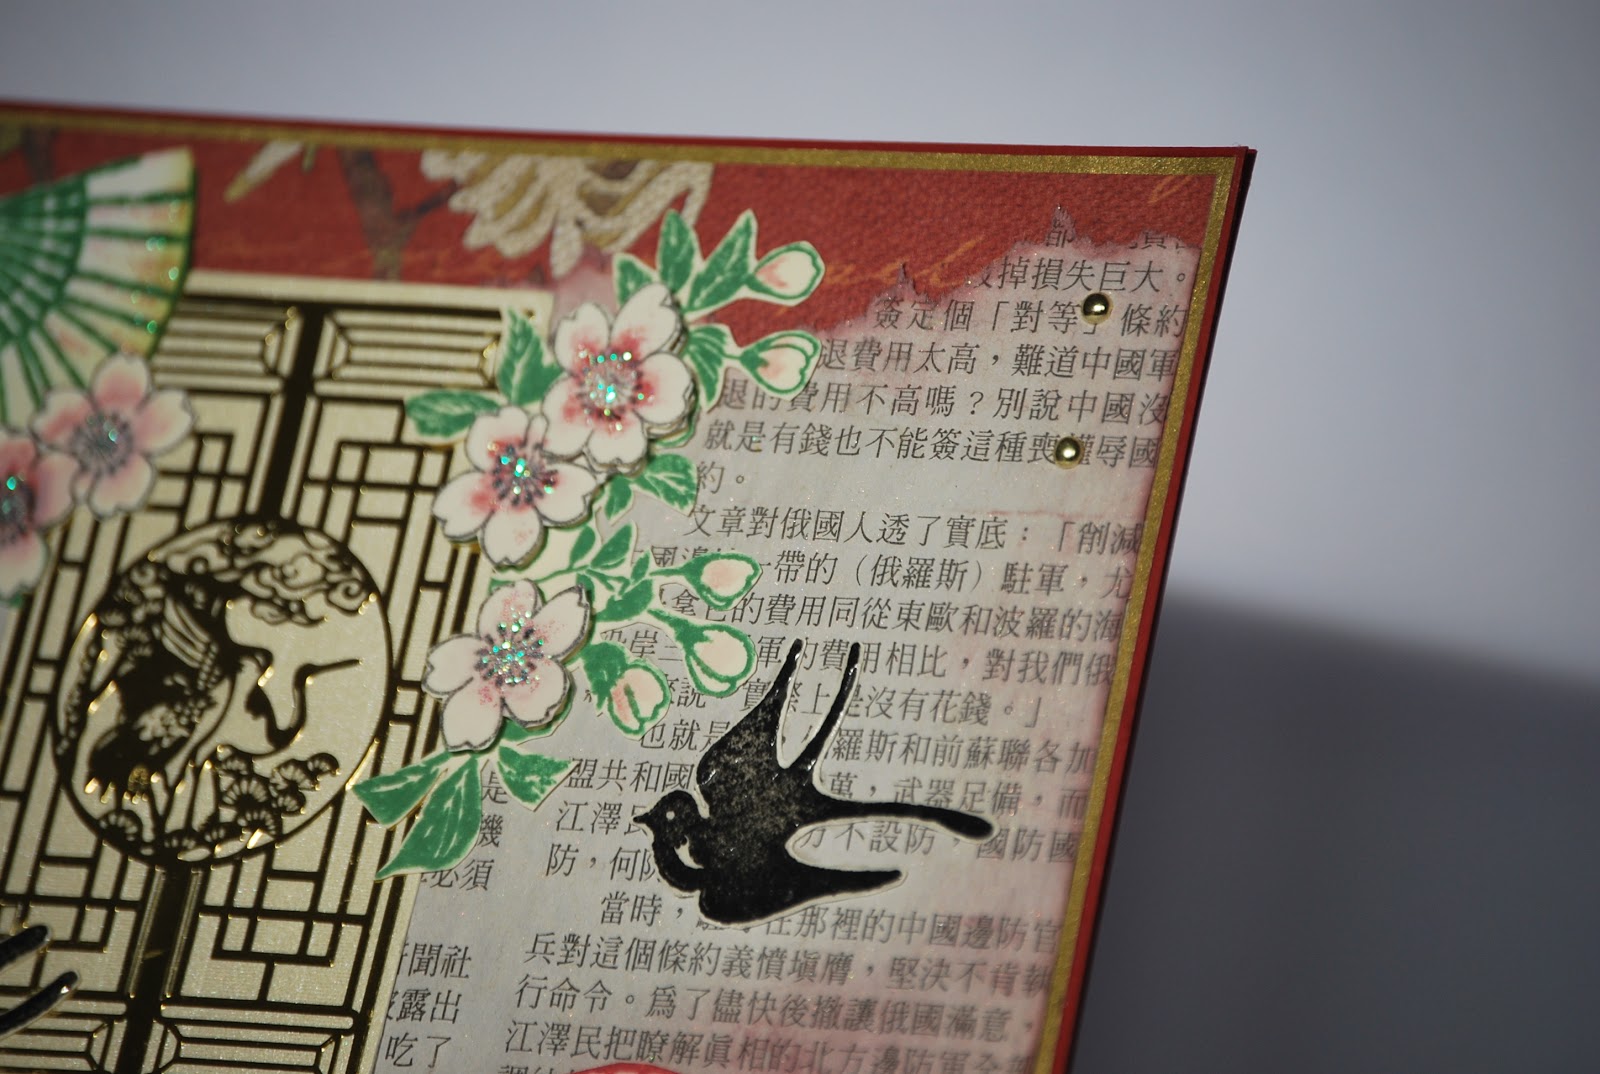 掉損失巨大。
簽定個「對等」條約
退費用太高，難道中國軍
退的費用不高嗎？別說中國沒
就是有錢也不能簽這種喪權辱國
約。
文章對俄國人透了實底：「削減
一帶的（俄羅斯）駐軍，尤
拿它的費用同從東歐和波羅的海
沿岸三 軍的費用相比，對我們俄
來說，實際上是沒有花錢。」
也就是 羅斯和前蘇聯各加
盟共和國 萬，武器足備，而
江澤民 方不設防，國防國
防，何防
當時， 在那裡的中國邊防官
兵對這個條約義憤塡膺，堅決不肯執
行命令。爲了儘快後撤讓俄國滿意，
江澤民把瞭解眞相的北方邊防軍全部
是
機
必須
聞社
露出
吃了